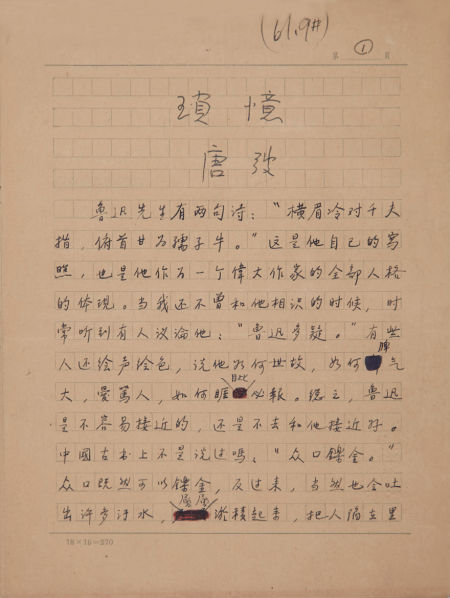 (61.9#)
第 1 頁
瑣憶
唐弢
魯迅先生有两句诗："横眉冷对千夫
指，俯首甘为孺子牛。"这是他自己的写
照，也是他作为一个偉大作家的全部人格
的体现。当我还不曾和他相识的时候，时
常听到有人议论他："鲁迅多疑。"有些
人还绘声绘色，说他如何世故，如何脾气
大，爱罵人，如何睚眦必報。總之，鲁迅
是不容易接近的，还是不去和他接近好。
中國古书上不是说过嗎："众口鑠金。"
众口既然可以鑠金，反过来，当然也会吐
出许多汙水，届届淤積起来，把人陷在里
18×15=270